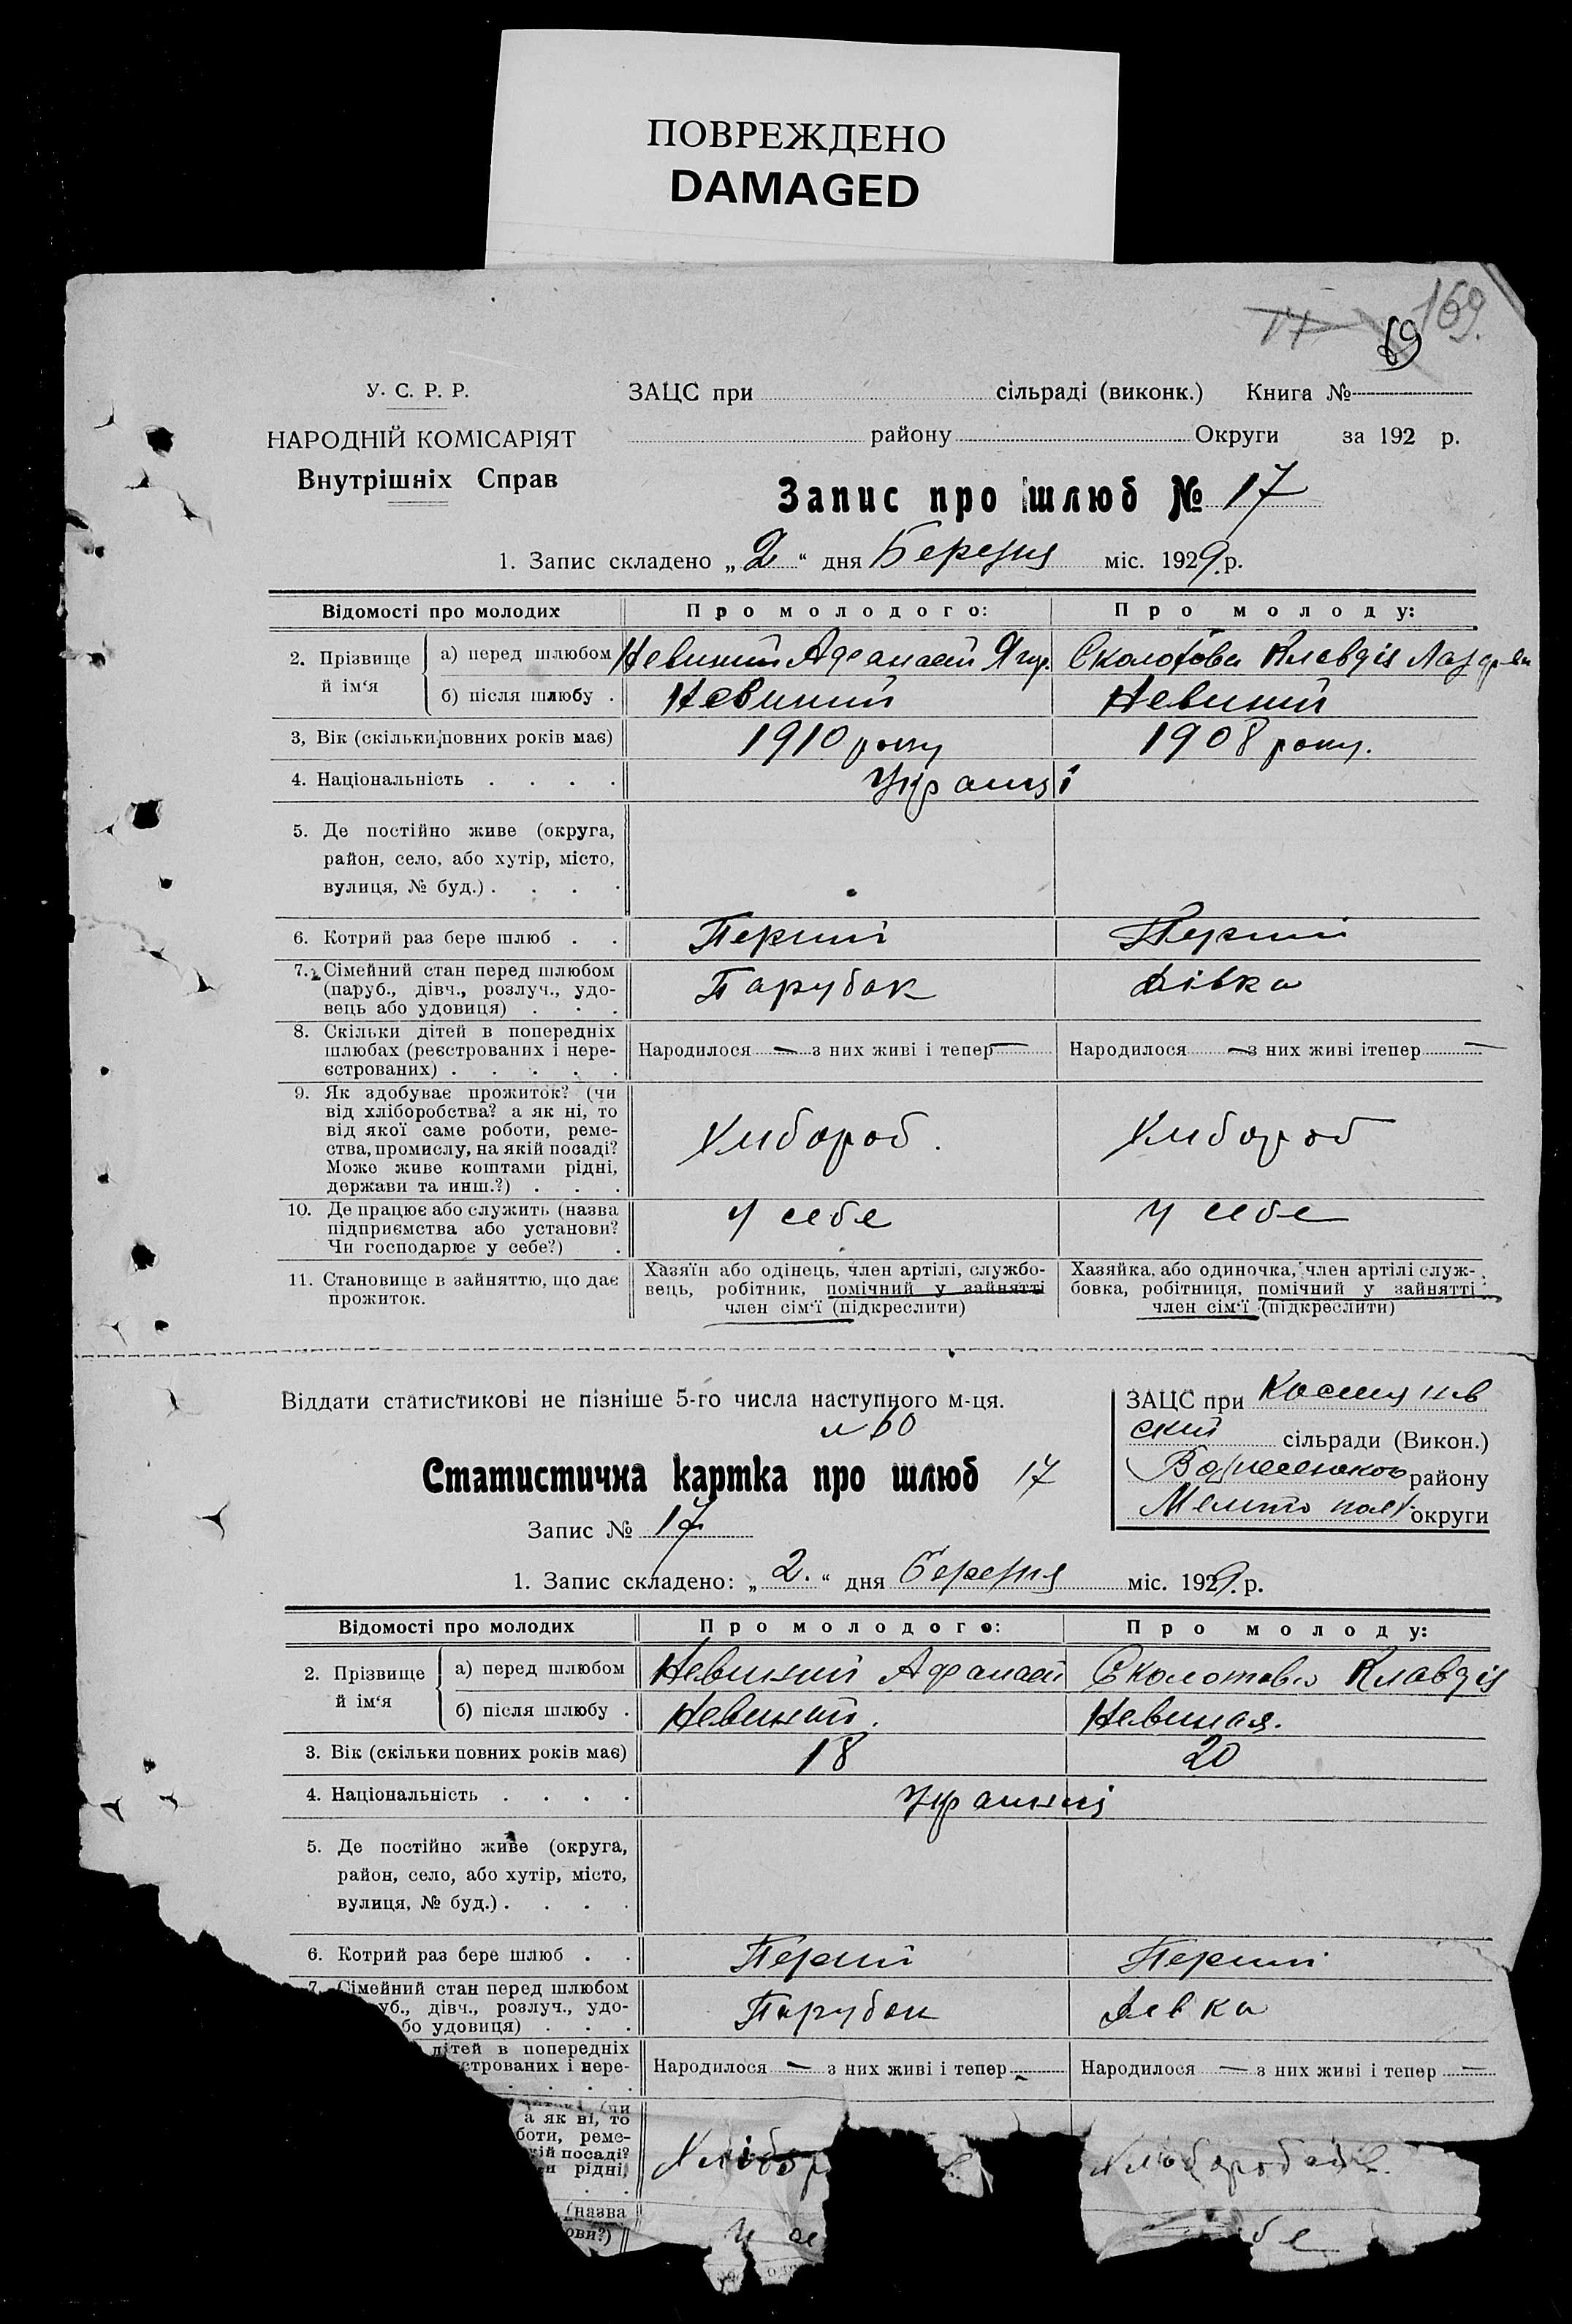 ПОВРЕЖДЕНО
DAMAGED
169.
17
69
У. С. Р. Р.
НАРОДНІЙ КОМІСАРІЯТ
Внутрішніх Справ
ЗАЦС при сільраді (виконк.) Книга №
району Округи за 192 р.
Запис про шлюб № 17
1. Запис складено „2“ дня Березня міс. 1929 р.
Відомості про молодих Про молодого: Про молоду:
2. Прізвище й імʻя
а) перед шлюбом Невиний Афанасій Сколотова Клавдія
б) після шлюбу . Невиний Невиний
3, Вік (скільки повних років має) 1910 року 1908 року.
4. Національність . . . . Українці
5. Де постійно живе (округа,
район, село, або хутір, місто,
вулиця, № буд.) . . . .
6. Котрий раз бере шлюб . . Перший Перший
7. Сімейний стан перед шлюбом
(паруб., дівч., розлуч., удо-
вець або удовиця) . . . Парубок Дівка
8. Скільки дітей в попередніх
шлюбах (реєстрованих і нере-
єстрованих) . . . . . Народилося — з них живі і тепер — Народилося — з них живі ітепер —
9. Як здобуває прожиток? (чи
від хліборобства? а як ні, то
від якої саме роботи, реме-
ства, промислу, на якій посаді?
Може живе коштами рідні,
держави та инш.?) . . . Хлібороб. Хлібороб
10. Де працює або служить (назва
підприємства або установи?
Чи господарює у себе?) . У себе У себе
11. Становище в зайняттю, що дає
прожиток.
Хазяїн або одінець, член артілі, службо-
вець, робітник, помічний у зайнятті
член сімʻї (підкреслити)
Хазяйка, або одиночка, член артілі служ-
бовка, робітниця, помічний у зайнятті
член сімʻї (підкреслити)
Віддати статистикові не пізніше 5-го числа наступного м-ця.
Статистична картка про шлюб 17
Запис № 17
ЗАЦС при
ский сільради (Викон.)
району
округи
1. Запис складено: „2.“ дня березня міс. 1929. р.
Відомості про молодих Про молодого: Про молоду:
2. Прізвище й імʻя
а) перед шлюбом Невиний Афанасій Сколотова Клавдія
б) після шлюбу . Невиний. Невиная.
3. Вік (скільки повних років має) 18 20
4. Національність . . . . Українці
5. Де постійно живе (округа,
район, село, або хутір, місто,
вулиця, № буд.) . . . .
6. Котрий раз бере шлюб . . Перший Перший
7. Сімейний стан перед шлюбом
уб., дівч., розлуч., удо-
бо удовиця) . . . Парубок Девка
дітей в попередніх
строваних і нере-
Народилося — з них живі і тепер - Народилося — з них живі і тепер —
(чи
а як ні, то
боти, реме-
кій посаді?
рідні,
(назва
ови?)